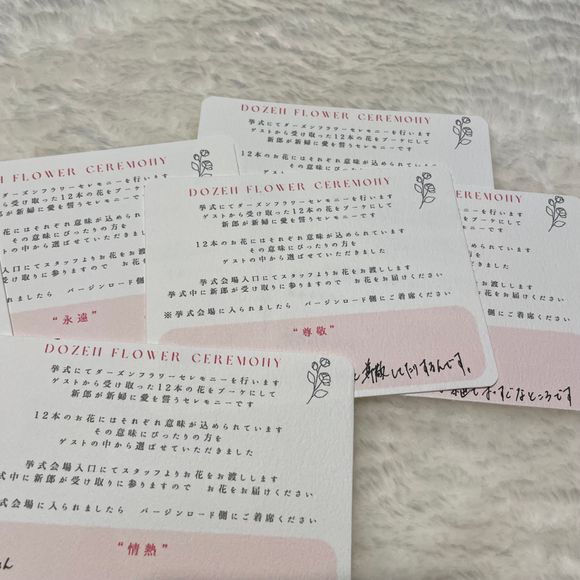 DOZEN FLOWER CEREMONY
挙式にてダーズンフラワーセレモニーを行います
ゲストから受け取った12本の花をブーケにして
新郎が新婦に愛を誓うセレモニーです
12本のお花にはそれぞれ意味が込められています
DOZEN FLOWER CEREMONY
にてダーズンフラワーセレモニーを行います
ゲストから受け取った12本の花をブーケに
新郎が新婦に愛を誓うセレモニーです
本のお花にはそれぞれ意味が込められ
その意味にぴったりの方を
ゲストの中から選ばせていただきまし
挙式会場入口にてスタッフよりお花をお渡し
挙式中に新郎が受け取りに参りますので お花を
られましたら バージンロード
“永遠”
DOZEN FLOWER CEREMONY
挙式にてダーズンフラワーセレモニーを行います
ゲストから受け取った12本の花をブーケにして
新郎が新婦に愛を誓うセレモニーです
12本のお花にはそれぞれ意味が込められています
その意味にぴったりの方を
ゲストの中から選ばせていただきました
挙式会場入口にてスタッフよりお花をお渡しします
挙式中に新郎が受け取りに参りますので お花をお届けください
※挙式会場に入られましたら バージンロード側にご着席ください
“尊敬”
尊敬してたりするんです。
EMONY
レモニーを行います
花をブーケにして
レモニーです
込められています
の方を
ただきました
お花をお渡しします
お花をお届けください
ロード側にご着席ください
なところです
DOZEN FLOWER CEREMONY
挙式にてダーズンフラワーセレモニーを行います
ゲストから受け取った12本の花をブーケにして
新郎が新婦に愛を誓うセレモニーです
12本のお花にはそれぞれ意味が込められています
その意味にぴったりの方を
ゲストの中から選ばせていただきました
挙式会場入口にてスタッフよりお花をお渡しします
式中に新郎が受け取りに参りますので お花をお届けください
式会場に入られましたら バージンロード側にご着席ください
“情熱”